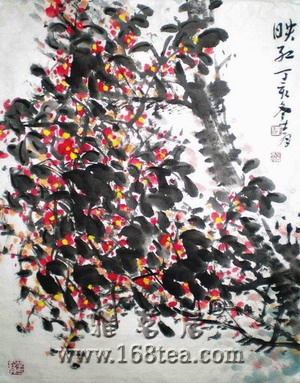 映红 丁亥冬
雅茗居
www.168tea.com